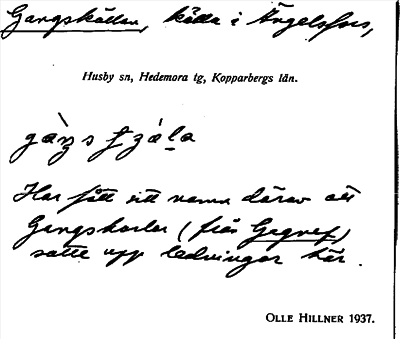 Gangskällan, källa i Ängelsfors,
Husby sn, Hedemora tg, Kopparbergs län.
Har fått sitt namn därav att
Gangskarlar (från Gagnef)
satte upp ledningar här.
OLLE HILLNER 1937.